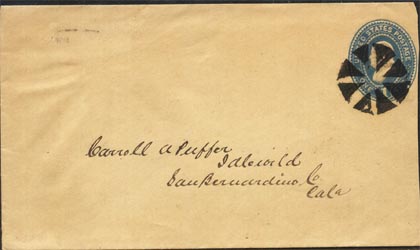 UNITED STATES POSTAGE
Carroll A Puffer
Idlewild
San Bernardino. C.
Cala